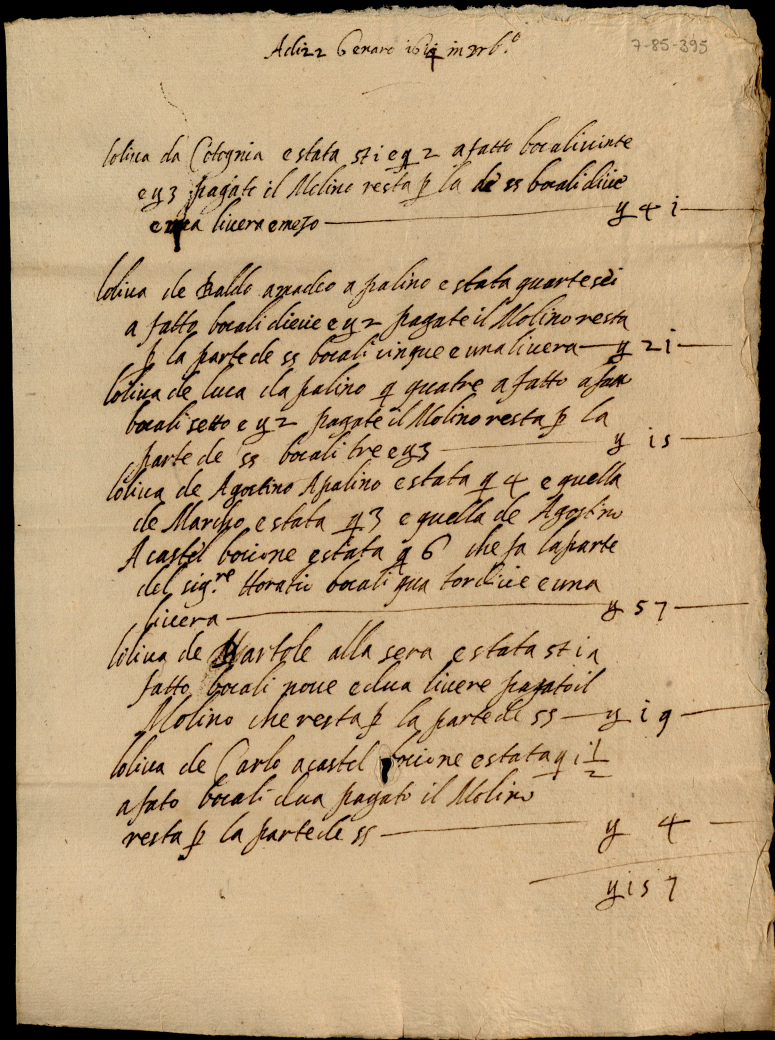 Adi 22 Genaro 1614 in
7-85-395
loliva da Cotognia e stata st i e q 2 a fatto bocali vinte
e y 3 pagato il Molino resta p la de ss bocali diece
e una livera e mezo y 4 i
loliva de Baldo amadeo a palino e stata quarte sei
a fatto bocali diece e y 2 pagate il Molino resta
p la parte de ss bocali cinque e una livera y 2 i
loliva de luca da palino q quatre a fatto
bocali sette e y 2 pagate il Molino resta p la
parte de ss bocali tre e y 3 y i s
loliva de Agostino Apalino e stata q 4 e quella
de Marcho e stata q 3 e quella de Agostino
A castel bocione e stata q 6 che fa la parte
del sig.re Horatio bocali quatordice e una
livera y 5 7
loliva de Bartole alla sera e stata st i a
fatto bocali nove e dua livere pagato il
Molino che resta p la parte de ss y i 9
loliva de Carlo a castel bocione e stata q i 1/2
a fato bocali dua pagato il Molino
resta p la parte de ss y 4
y i s 7